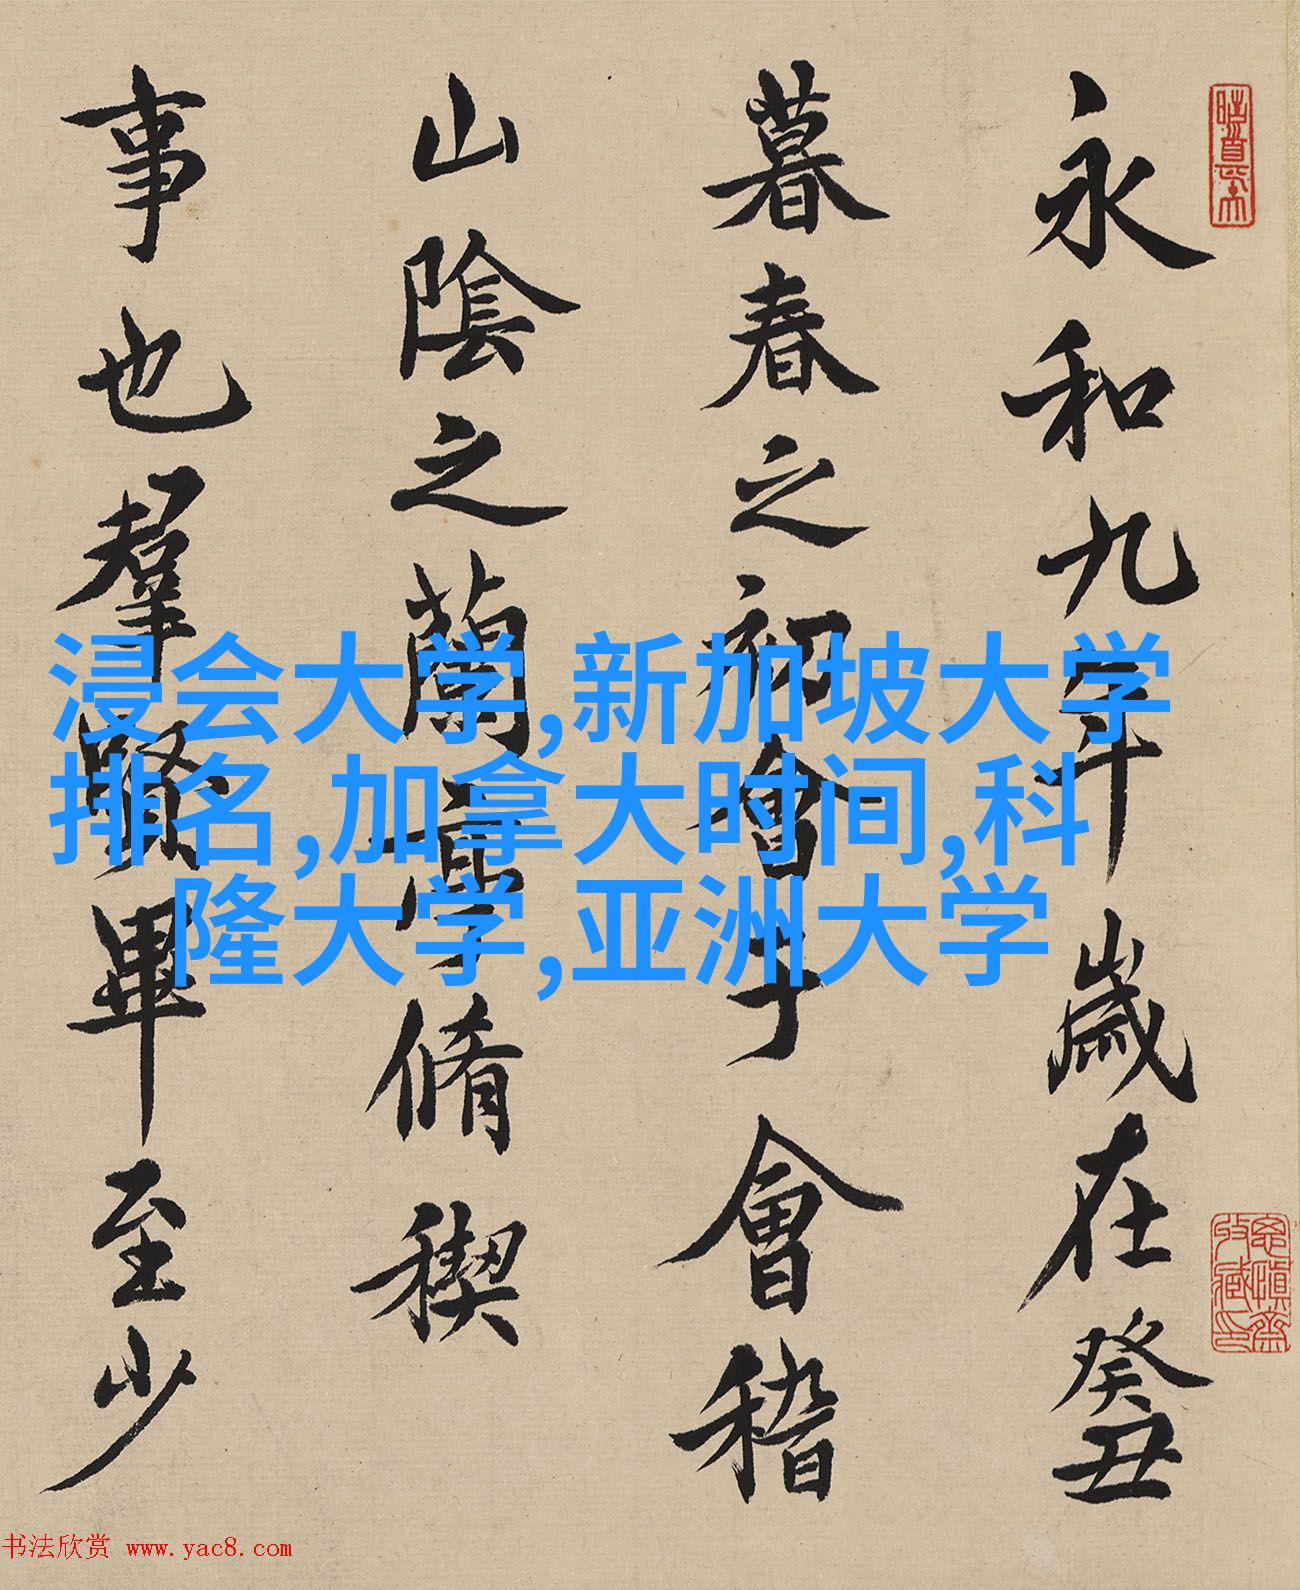 永和九年歲在癸丑
暮春之初會于會稽
山陰之蘭亭脩稧
事也羣賢畢至少
浸会大学,新加坡大学
排名,加拿大时间,科
隆大学,亚洲大学
书法欣赏 www.yac8.com